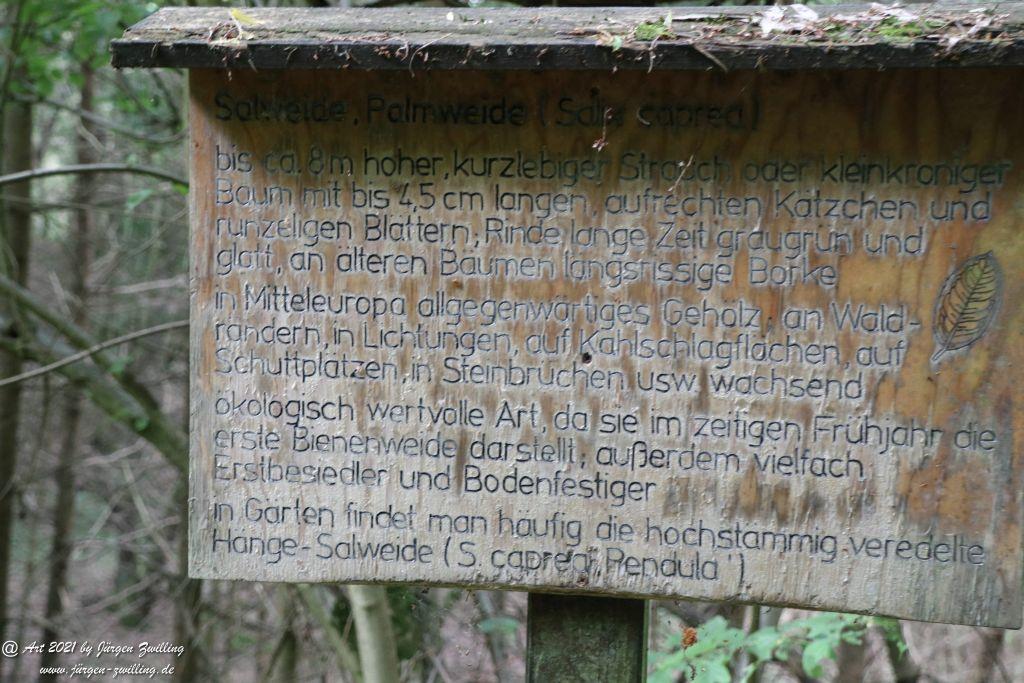 Salweide, Palmweide (Salix caprea)
bis ca. 8 m hoher, kurzlebiger Strauch oder kleinkroniger
Baum mit bis 4,5 cm langen, aufrechten Kätzchen und
runzeligen Blättern, Rinde lange Zeit graugrün und
glatt, an älteren Bäumen längsrissige Borke
in Mitteleuropa allgegenwärtiges Gehölz, an Wald-
rändern, in Lichtungen, auf Kahlschlagflächen, auf
Schuttplätzen, in Steinbrüchen usw. wachsend
ökologisch wertvolle Art, da sie im zeitigen Frühjahr die
erste Bienenweide darstellt; außerdem vielfach
Erstbesiedler und Bodenfestiger
in Gärten findet man häufig die hochstämmig veredelte
Hänge-Salweide (S. caprea 'Pendula')
@ Art 2021 by Jürgen Zwilling
www.jürgen-zwilling.de